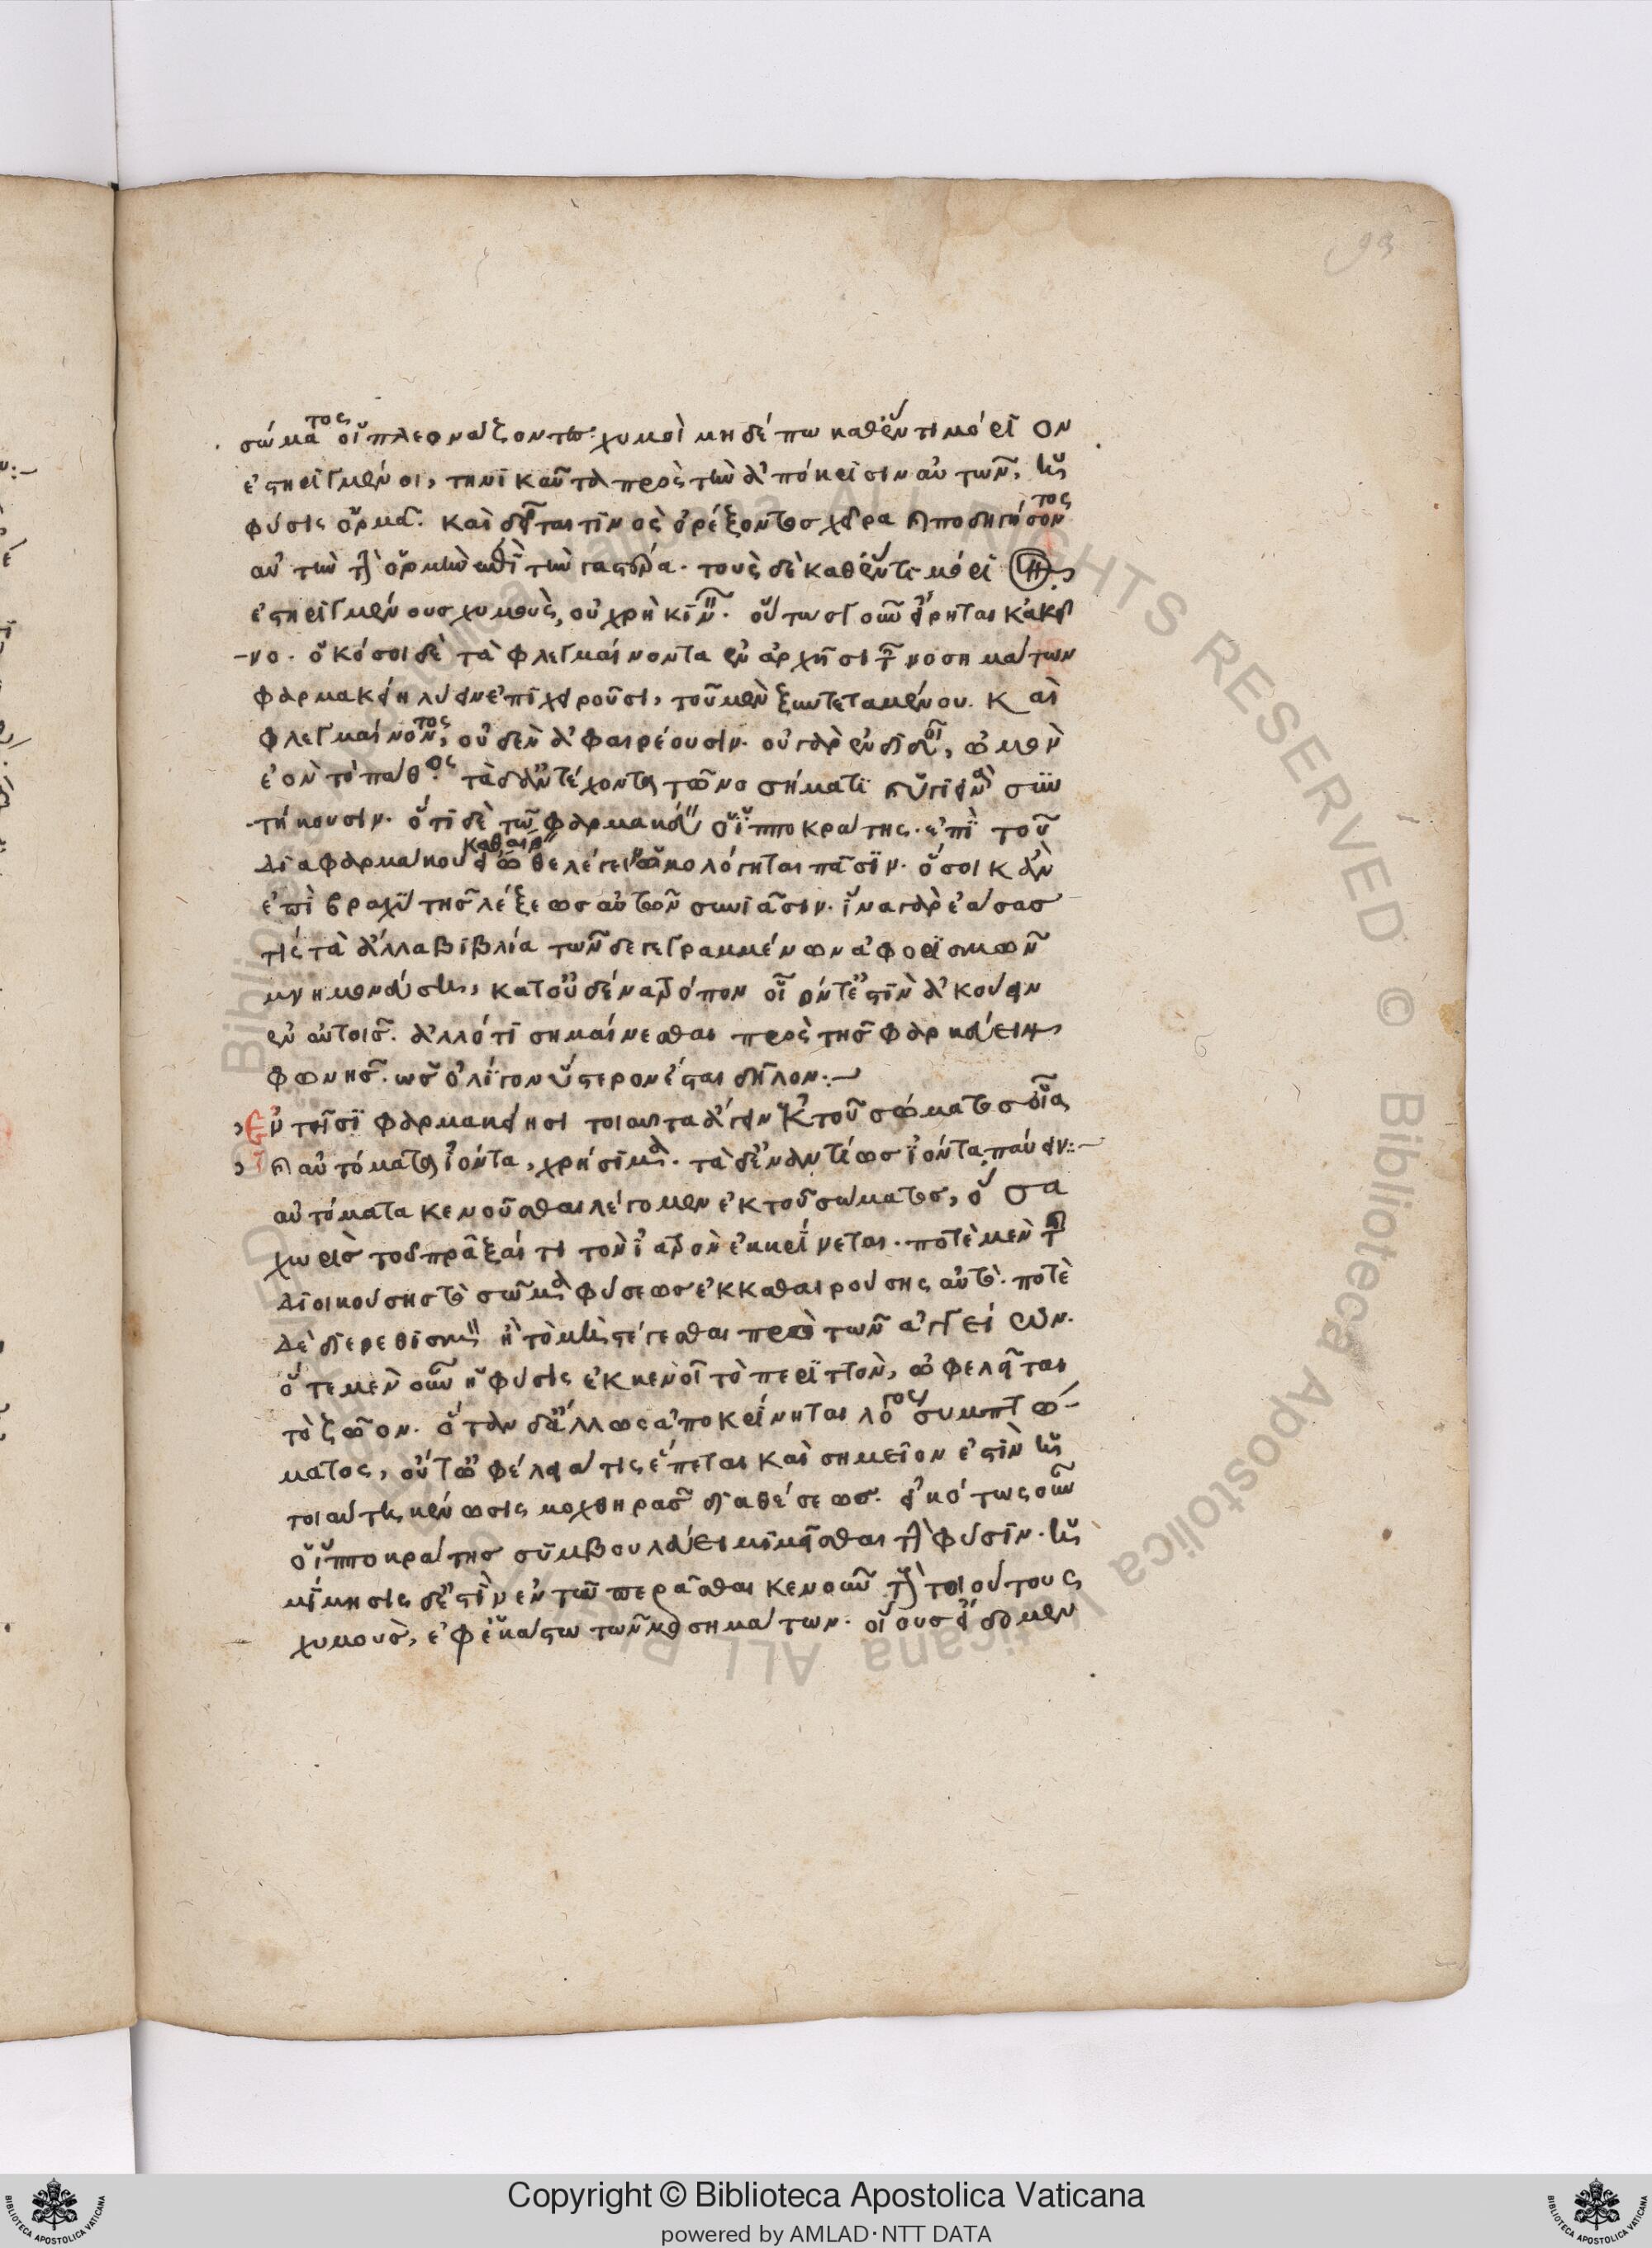 σώματος οἱ πλεονάζοντες χυμοὶ μηδέπω καθ' ἕν τι μόριον
ἐστηριγμένοι, τηνικαῦτα πρὸς τὴν ἀπόκρισιν αὐτῶν, ἡ
φύσις ὁρμᾷ. καὶ δεῖταί τινος ὀρέξοντος χεῖρα καὶ ποδηγήσοντος
αὐτὴν τὴν ὁρμὴν ἐπὶ τὴν γαστέρα. τοὺς δὲ καθ' ἕν τι μόριον
ἐστηριγμένους χυμοὺς, οὐ χρὴ κινεῖν. οὕτωσὶ οὖν εἴρηται κἀκεῖ
νο. ὁκόσοι δὲ τὰ φλεγμαίνοντα ἐν ἀρχῆσι τῶν νοσημάτων
φαρμακείη λύειν ἐπιχειροῦσι, τοῦ μὲν ξυντεταμένου. καὶ
φλεγμαίνοντος, οὐδὲν ἀφαιρέουσιν. οὐ γὰρ ἐνδιδοῖ, ὠμὸν
ἐὸν τὸ πάθος. τὰ δ' ἀντέχοντα τῷ νοσήματι καὶ ὑγιεινὰ συν
τήκουσιν. ὅτι δὲ τῷ φαρμακεύειν ὁ Ἱπποκράτης ἐπὶ τοῦ
διὰ φαρμάκου καθαίρειν εἴωθε λέγειν ὡμολόγηται πᾶσιν. ὅσοι κἂν
ἐπὶ βραχὺ τῆς λέξεως αὐτοῦ συνιᾶσιν. ἵνα γὰρ ἐάσας
τις τὰ ἄλλα βιβλία τῶνδε γεγραμμένων ἀφορισμῶν
μνημονεύσῃ, κατ' οὐδένα τρόπον οἷόν τέ ἐστιν ἀκούειν
ἐν αὐτοῖς. ἄλλό τι σημαίνεσθαι πρὸς τῆς φαρμακεύειν
φωνῆς. ὡς ὀλίγον ὕστερον ἔσται δῆλον:~
Ἐν τοῖσι φαρμακείησι τοιαῦτα ἄγειν ἐκ τοῦ σώματος οἷα
καὶ αὐτόματα ἰόντα, χρήσιμα. τὰ δ' ἐναντίως ἰόντα, παύειν:~
αὐτόματα κενοῦσθαι λέγομεν ἐκ τοῦ σώματος, ὅσα
χωρὶς τοῦ πρᾶξαί τι τὸν ἰατρὸν ἐκκρίνεται. ποτὲ μὲν τῆς
διοικούσης τὸ σῶμα φύσεως ἐκκαθαιρούσης αὐτό. ποτὲ
δὲ διερεθισμῷ ἢ τῷ μὴ στέγεσθαι πρὸς τῶν ἀγγείων.
ὅτε μὲν οὖν ἡ φύσις ἐκκενοῖ τὸ περιττὸν, ὠφελεῖται
τὸ ζῷον. ὅταν δ' ἄλλως ἀποκρίνηται λόγος συμπτώ-
ματος, οὔτ' ὠφέλειά τις ἕπεται καὶ σημεῖον ἐστὶν ἡ
τοιαύτη κένωσις μοχθηρᾶς διαθέσεως. εἰκότως οὖν
ὁ Ἱπποκράτης συμβουλεύει μιμεῖσθαι τὴν φύσιν. ἡ
μίμησις δ' ἐστὶν ἐν τῷ πειρᾶσθαι κενοῦν τοὺς τοιούτους
χυμοὺς, ἐφ' ἑκάστῳ τῶν νοσημάτων. οἵους εἴδομεν